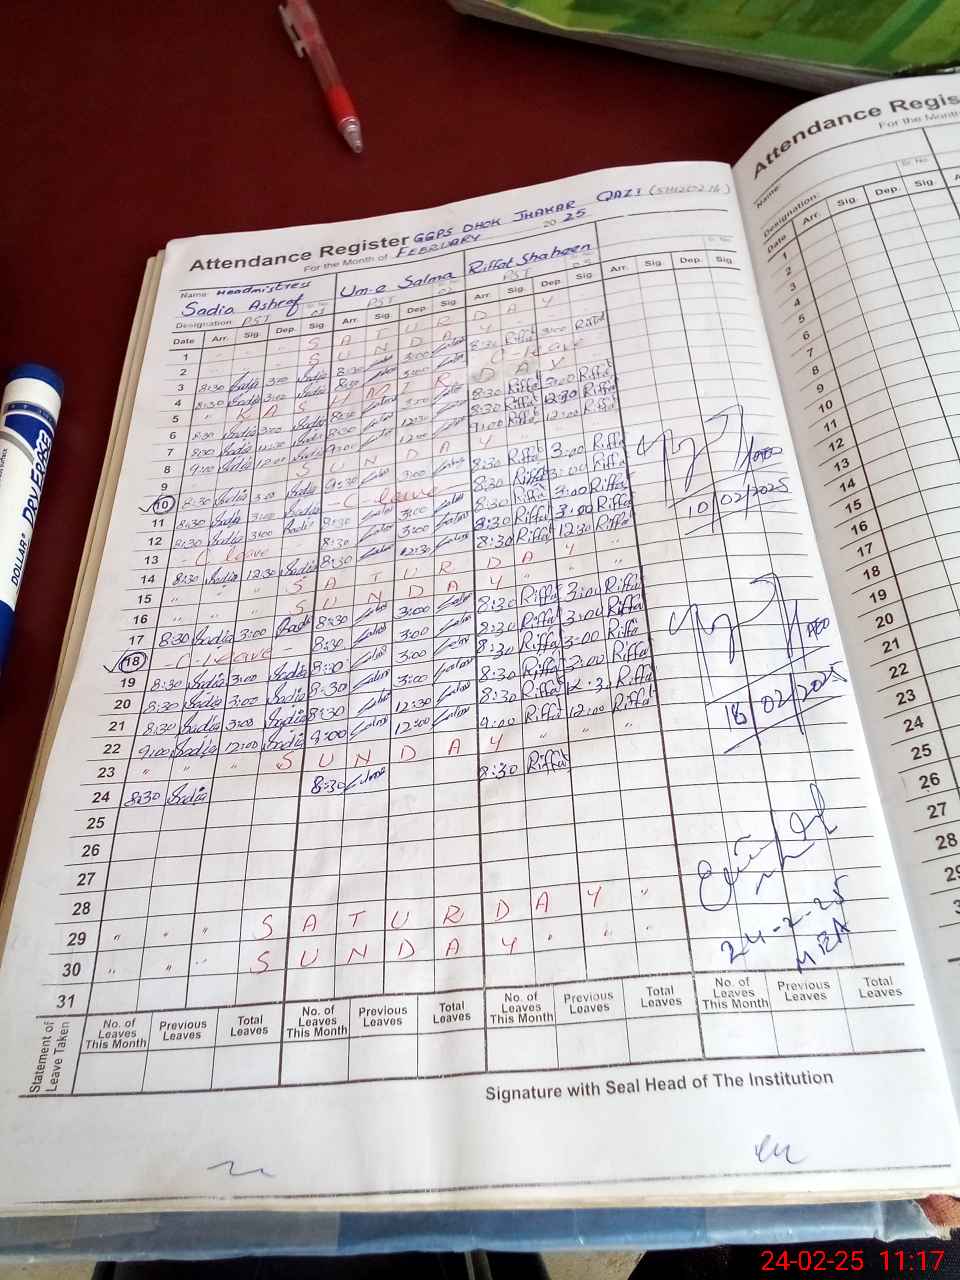 Attendance Register GGPS DHOK JHAKAR QAZI
For the Month of FEBRUARY 2025
Name: Headmistress
Sadia Ashraf Um-e Salma Riffat Shaheen
Designation: PST PST PST
Date Arr. Sig. Dep. Sig. Arr. Sig. Dep. Sig. Arr. Sig. Dep. Sig. Arr. Sig. Dep. Sig.
1 " " " S A T U R D A Y
2 S U N D A Y
3 8:30 Sadia 3:00 Sadia 8:30 3:00 8:30 Riffat 3:00 Riffat
4 8:30 Sadia 3:00 Sadia 8:30 3:00 C-leave
5 " K A S H M I R D A Y
6 8:30 Sadia 3:00 Sadia 8:30 3:00 8:30 Riffat 3:00 Riffat
7 8:30 Sadia 12:30 Sadia 8:30 12:30 8:30 Riffat 12:30 Riffat
8 9:00 Sadia 12:00 Sadia 9:00 12:00 9:00 Riffat 12:00 Riffat
9 S U N D A Y
10 8:30 Sadia 3:00 Sadia 8:30 3:00 8:30 Riffat 3:00 Riffat
11 8:30 Sadia 3:00 Sadia - C-leave - 8:30 Riffat 3:00 Riffat
12 8:30 Sadia 3:00 Sadia 8:30 3:00 8:30 Riffat 3:00 Riffat
13 - C leave - 8:30 3:00 8:30 Riffat 3:00 Riffat
14 8:30 Sadia 12:30 Sadia 8:30 12:30 8:30 Riffat 12:30 Riffat
15 " " " S A T U R D A Y " "
16 " " " S U N D A Y " "
17 8:30 Sadia 3:00 Sadia 8:30 3:00 8:30 Riffat 3:00 Riffat
18 - C-leave - 8:30 3:00 8:30 Riffat 3:00 Riffat
19 8:30 Sadia 3:00 Sadia 8:30 3:00 8:30 Riffat 3:00 Riffat
20 8:30 Sadia 3:00 Sadia 8:30 3:00 8:30 Riffat 3:00 Riffat
21 8:30 Sadia 3:00 Sadia 8:30 12:30 8:30 Riffat 12:30 Riffat
22 9:00 Sadia 12:00 Sadia 9:00 12:00 9:00 Riffat 12:00 Riffat
23 " " " S U N D A Y " " "
24 8:30 Sadia 8:30 8:30 Riffat
25
26
27
28
29 " " " S A T U R D A Y "
30 " " " S U N D A Y " " "
31
10/02/2025
18/02/2025
24-2-25
MEA
Statement of Leave Taken
No. of Leaves This Month Previous Leaves Total Leaves No. of Leaves This Month Previous Leaves Total Leaves No. of Leaves This Month Previous Leaves Total Leaves No. of Leaves This Month Previous Leaves Total Leaves
Signature with Seal Head of The Institution
Attendance Regis
For the Month
Name:
Sr. No.
Designation:
Date Arr. Sig. Dep. Sig.
1
2
3
4
5
6
7
8
9
10
11
12
13
14
15
16
17
18
19
20
21
22
23
24
25
26
27
28
29
DOLLAR DRY ERASE
24-02-25 11:17